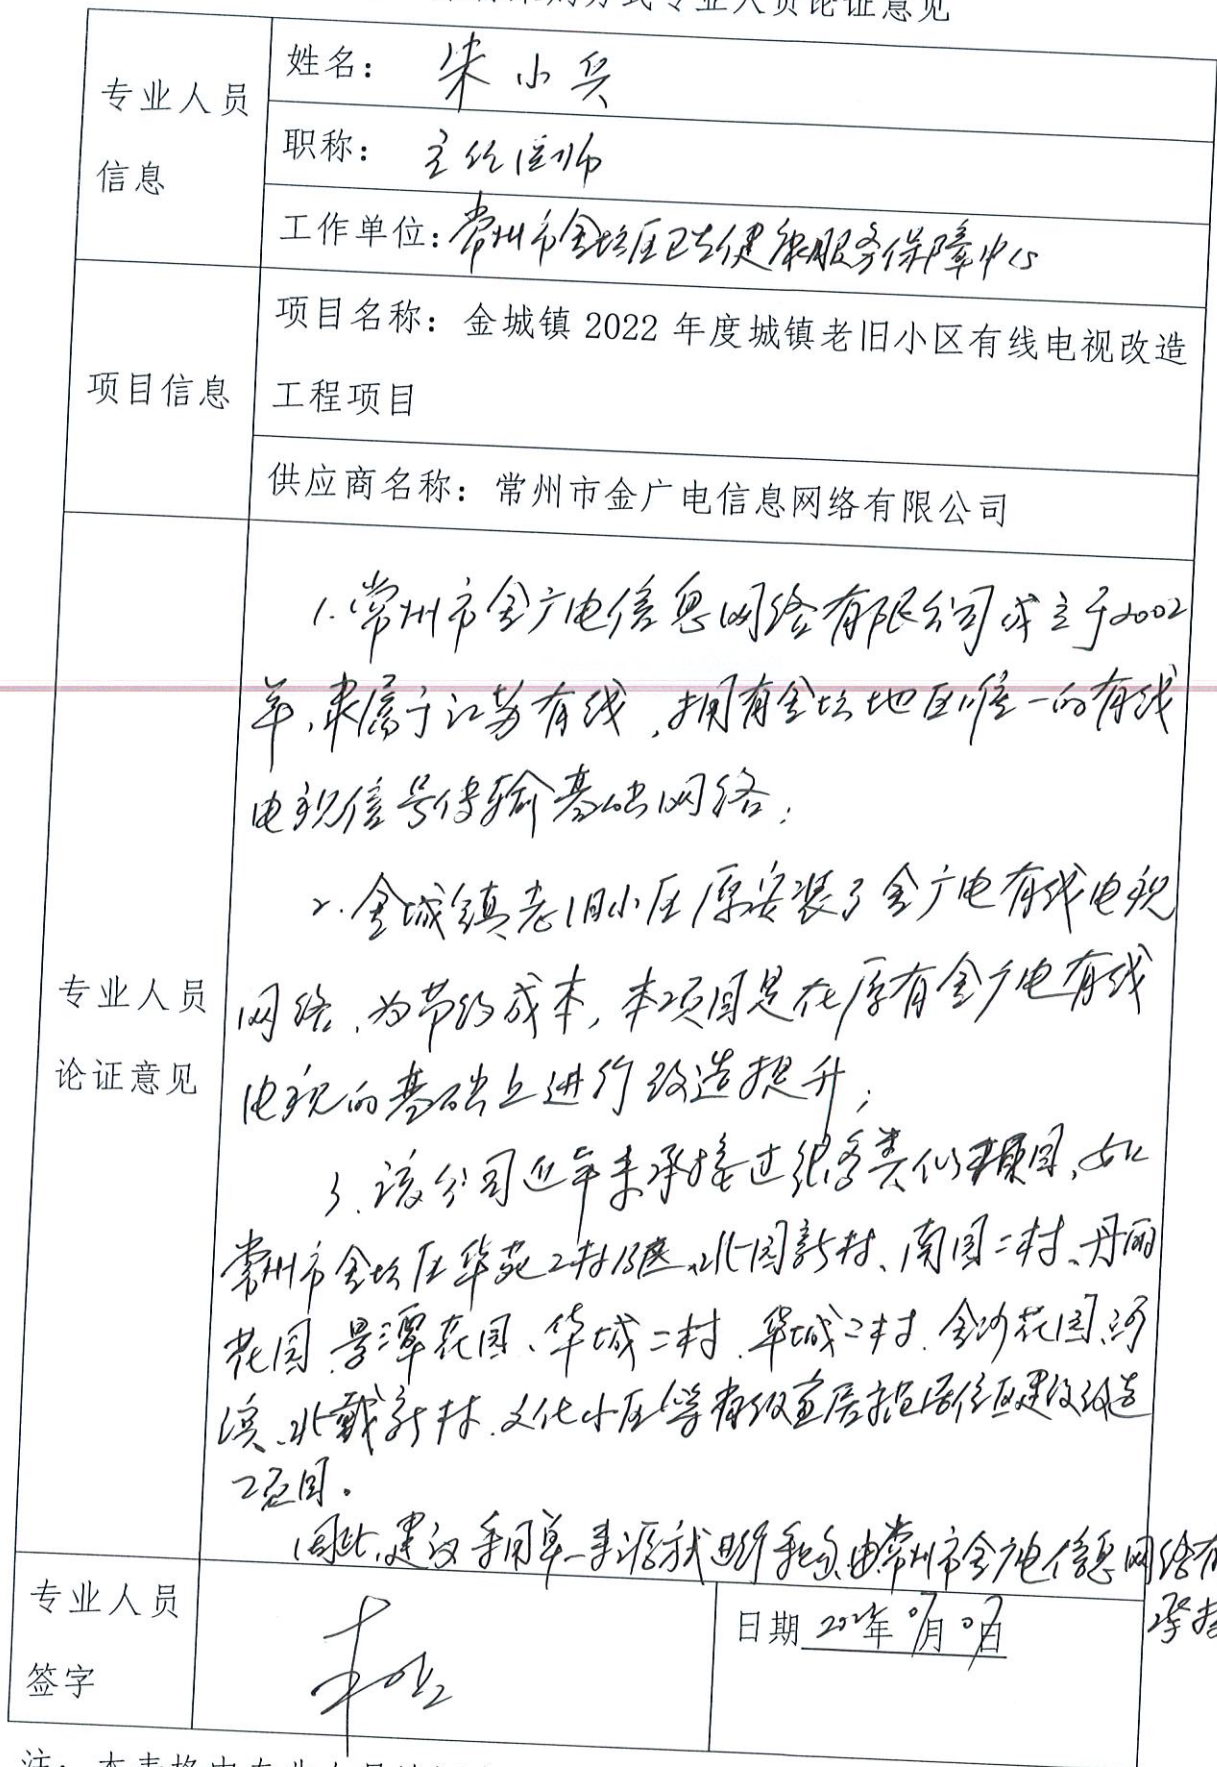 购方式专业人员论证意见
专业人员
信息
姓名： 朱小兵
职称： 主任医师
工作单位：常州市金坛区卫生健康服务保障中心
项目信息
项目名称：金城镇 2022 年度城镇老旧小区有线电视改造
工程项目
供应商名称：常州市金广电信息网络有限公司
专业人员
论证意见
1.常州市金广电信息网络有限公司成立于2002
年、隶属于江苏有线，拥有金坛地区唯一的有线
电视信号传输基础网络；
2.金城镇老旧小区原安装了金广电有线电视
网络、为节约成本，本项目是在原有金广电有线
电视的基础上进行改造提升；
3.该公司近年来承接过很多类似项目，如
常州市金坛区华苑二村、北园新村、南园二村、丹丽
花园、景潭花园、华城二村、华城三村、金沙花园、河
滨、北戴新村、文化小区等宜居居住区建设改造
项目。
因此，建议采用单一来源方式进行采购，由常州市金广电信息网络有
承接
专业人员
签字
日期 2022年07月07日
注：本表格由专业人员